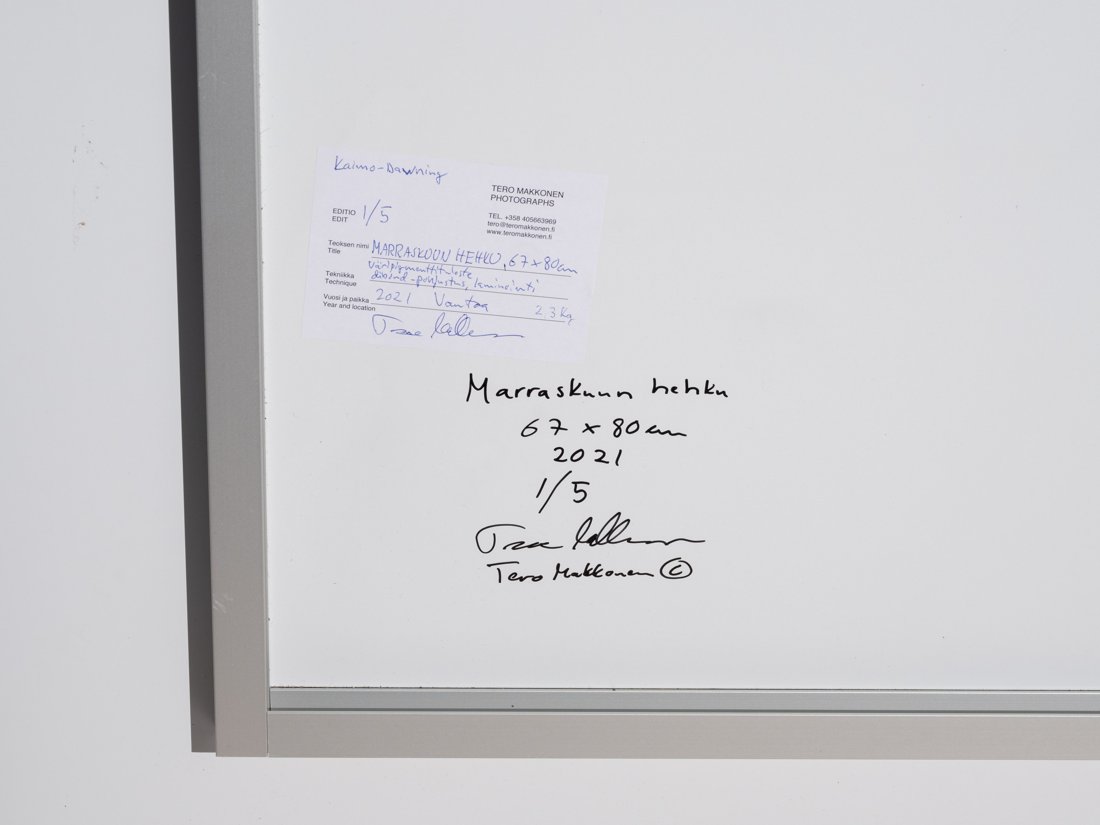 Kaimo-Dawning
TERO MAKKONEN
PHOTOGRAPHS
TEL. +358 405663969
tero@teromakkonen.fi
www.teromakkonen.fi
EDITIO
EDIT
1/5
Teoksen nimi
Title
MARRASKUUN HEHKU, 67 x 80cm
Tekniikka
Technique
väripigmenttituloste
dibond-pohjustus, laminointi
Vuosi ja paikka
Year and location
2021 Vantaa 2.3 Kg
Marraskuun hehku
67 x 80 cm
2021
1/5
Tero Makkonen ©